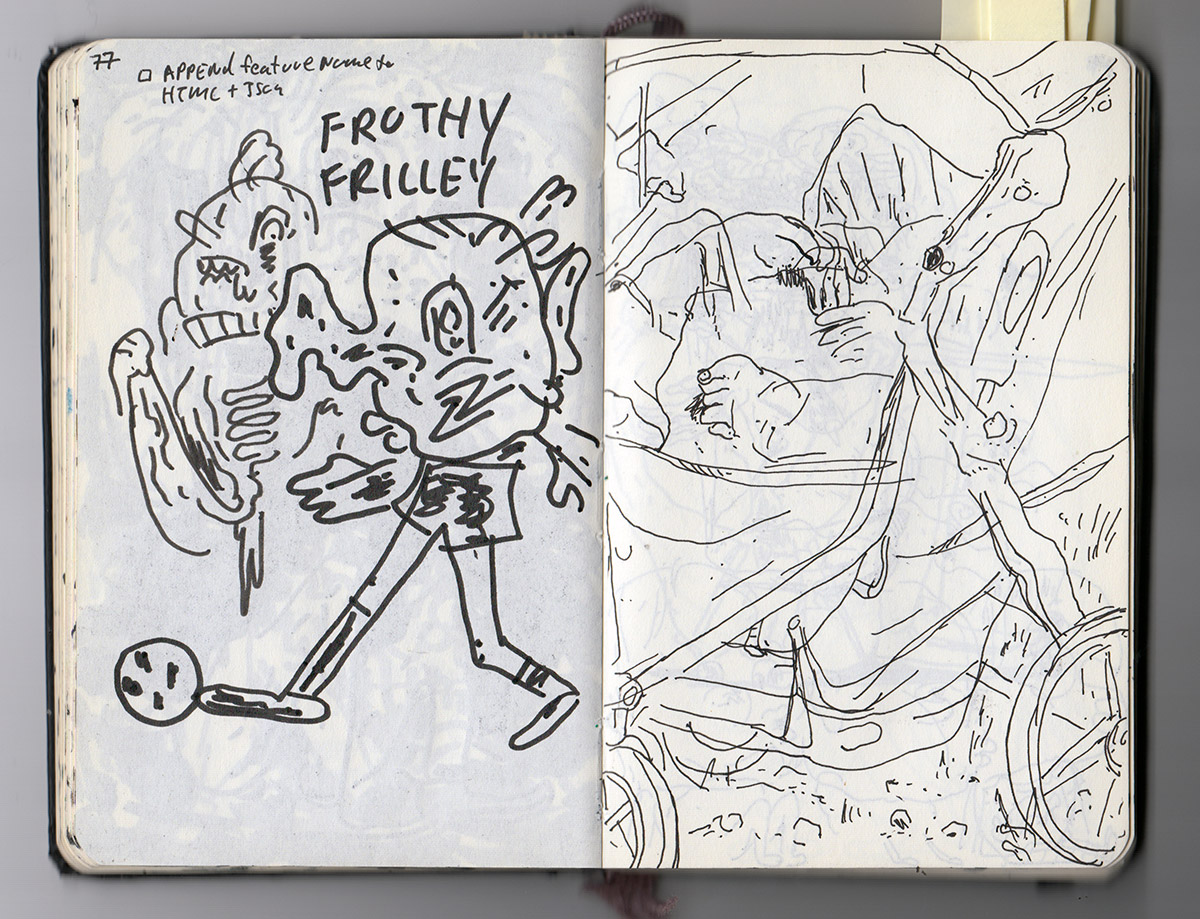 77
APPEND feature name to
HTML + JSON
FROTHY
FRILLEY